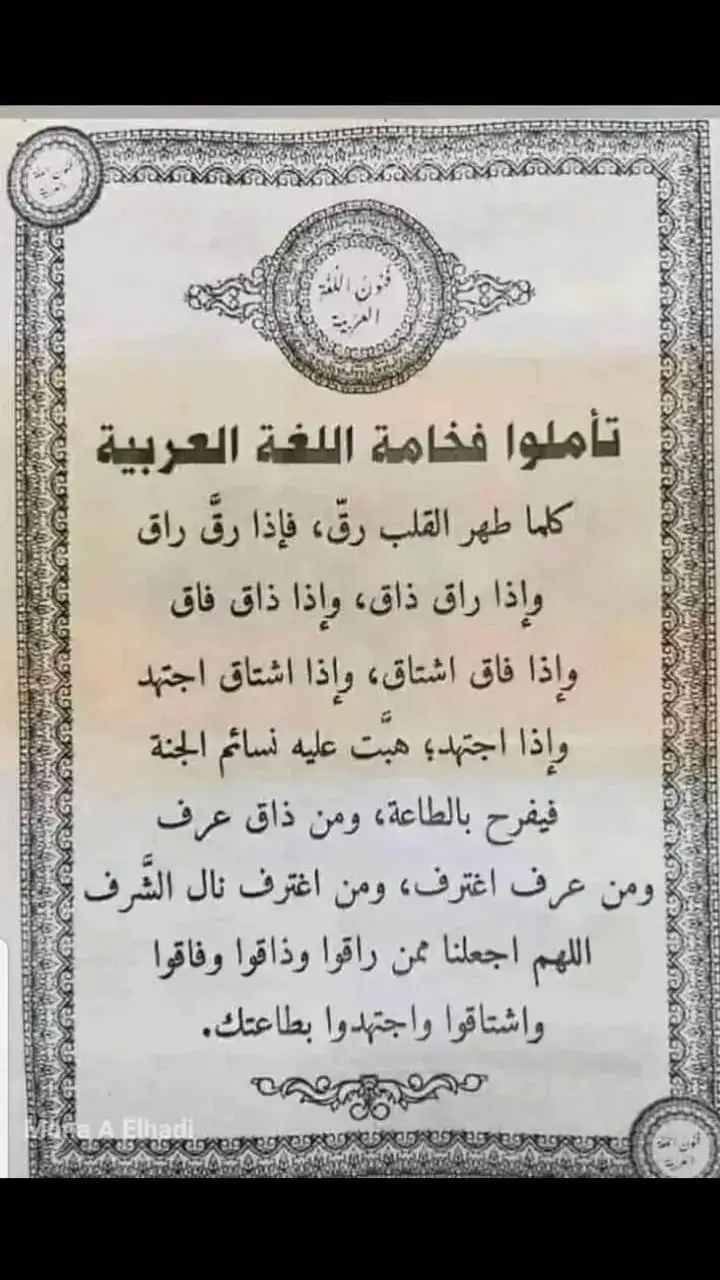 فنون اللغة
العربية
فنون اللغة
العربية
تأملوا فخامة اللغة العربية
كلما طهر القلب رقّ، فإذا رقَّ راق
وإذا راق ذاق، وإذا ذاق فاق
وإذا فاق اشتاق، وإذا اشتاق اجتهد
وإذا اجتهد؛ هبَّت عليه نسائم الجنة
فيفرح بالطاعة، ومن ذاق عرف
ومن عرف اغترف، ومن اغترف نال الشَّرف
اللهم اجعلنا ممن راقوا وذاقوا وفاقوا
واشتاقوا واجتهدوا بطاعتك.
A Elhadi
فنون اللغة
العربية